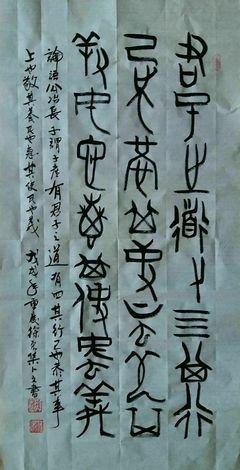 君子之道有四其行
己也恭其事上也敬其
養民也惠其使民也義
論語公冶長 子謂子產有君子之道有四其行己也恭其事
上也敬其養民也惠其使民也義 戊戌年 徐 集卜文書